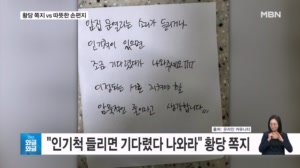 황당 쪽지 vs 따뜻한 손편지
MBN
앞집 문열리는 소리가 들리거나
인기척이 있으면
조금 기다렸다가 나와주세요!!!
이정도는 서로 지켜야 할
암묵적인 룰이라고 생각합니다...
출처: 온라인 커뮤니티
와글와글
"인기척 들리면 기다렸다 나와라" 황당 쪽지